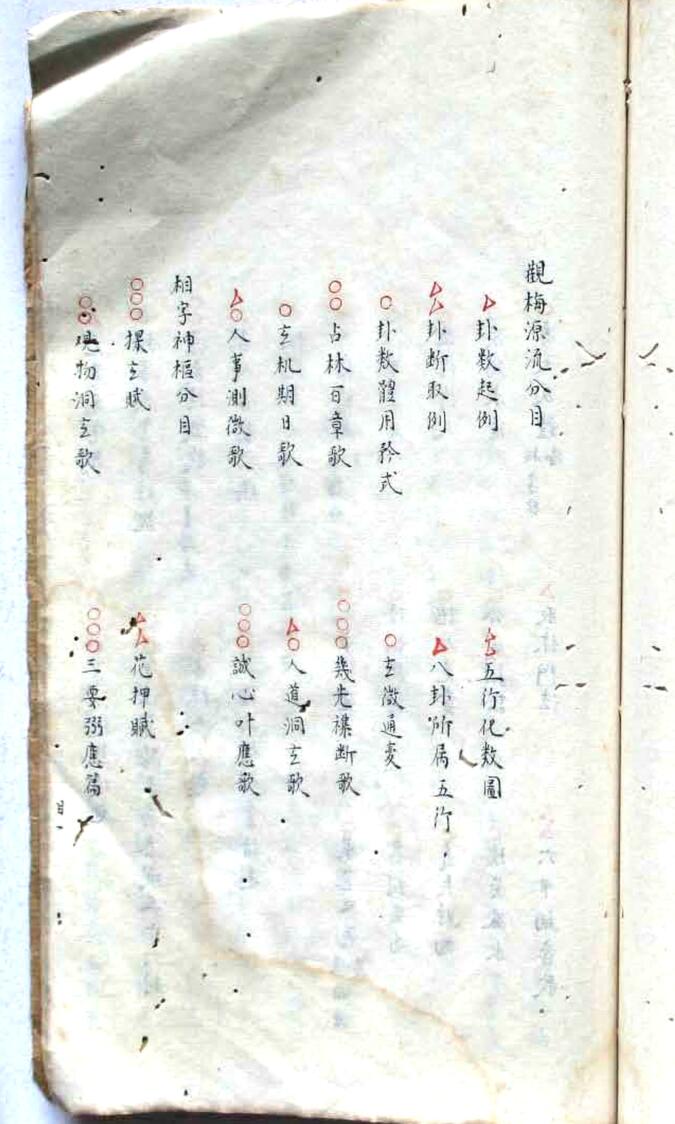 觀梅源流分目
卦数起例 五行化数圖
卦断取例 八卦所属五行
卦数體用矜式 玄微通变
占林百章歌 幾先襍断歌
玄机期日歌 人道洞玄歌
人事測微歌 誠心叶應歌
相字神樞分目
探玄賦 花押賦
观物洞玄歌 三要霛應篇
目一